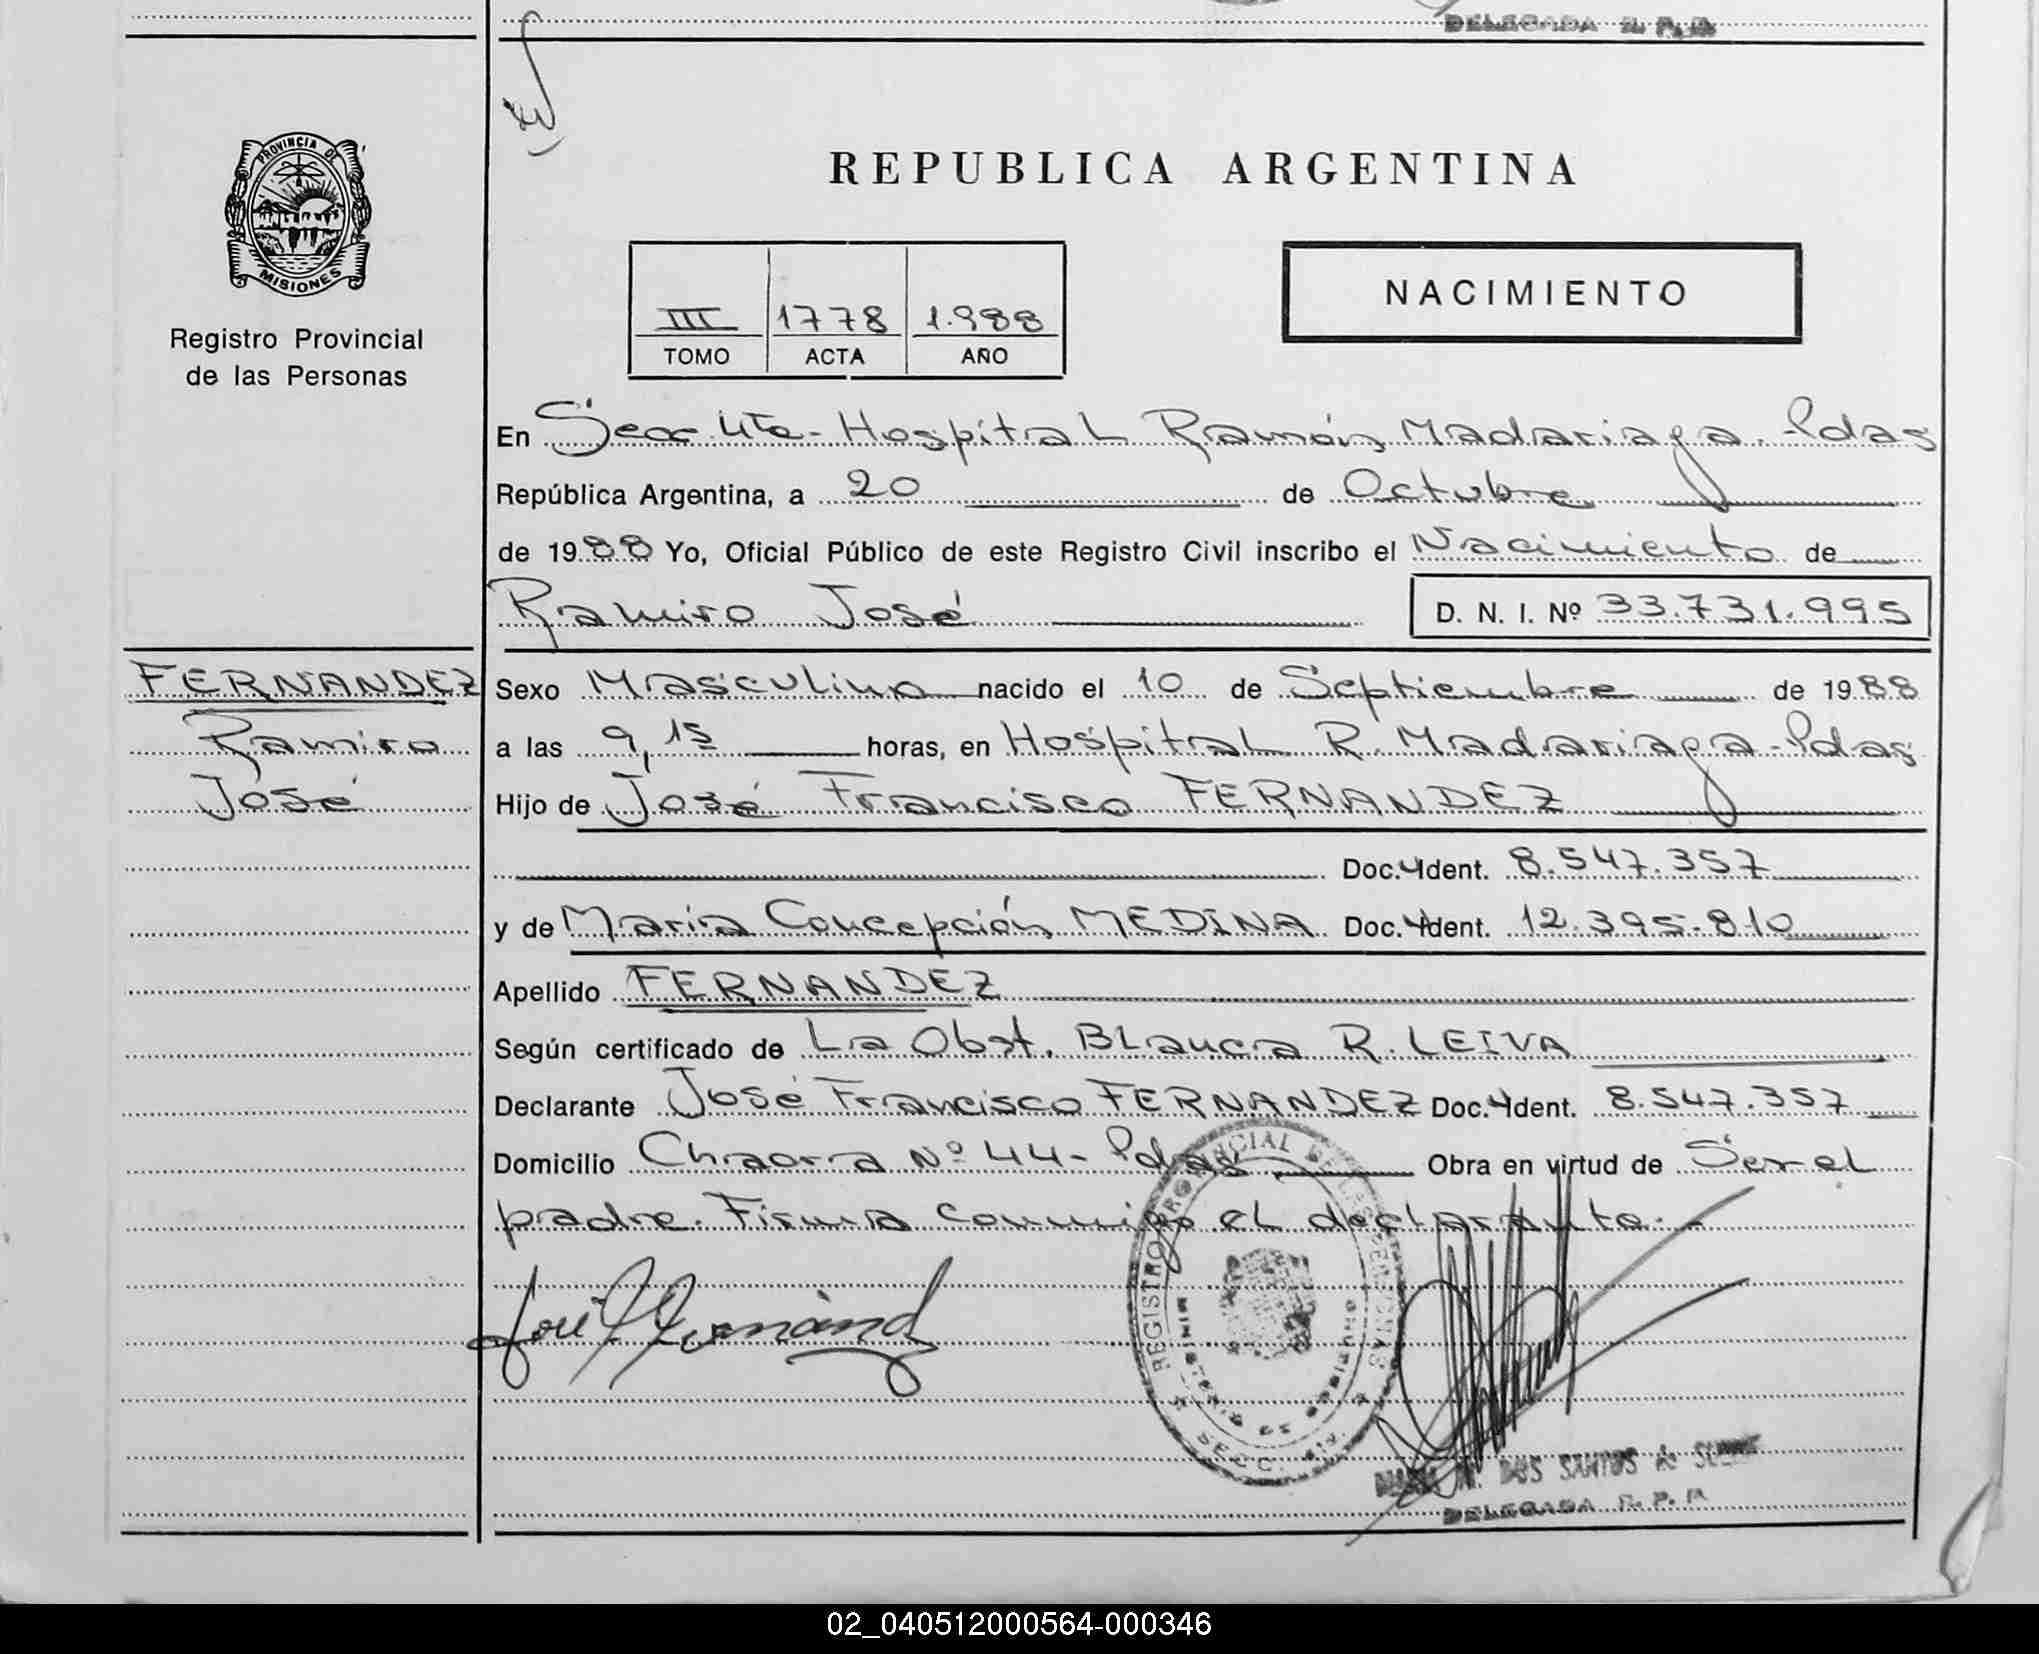 DELEGADA R. P. P.
REPUBLICA ARGENTINA
PROVINCIA DE
MISIONES
Registro Provincial
de las Personas
NACIMIENTO
III 1778 1.988
TOMO ACTA AÑO
En Secc. 4ta- Hospital Ramón Madariaga. Pdas
República Argentina, a 20 de Octubre
de 1988 Yo, Oficial Público de este Registro Civil inscribo el Nacimiento de
Ramiro José D. N. I. Nº 33.731.995
FERNANDEZ
Ramiro
José
Sexo Masculino nacido el 10 de Septiembre de 1988
a las 9,15 horas, en Hospital R. Madariaga-Pdas
Hijo de José Francisco FERNANDEZ
Doc. Ident. 8.547.357
y de María Concepción MEDINA Doc. Ident. 12.395.810
Apellido FERNANDEZ
Según certificado de La Obst. Blanca R. LEIVA
Declarante José Francisco FERNANDEZ Doc. Ident. 8.547.357
Domicilio Chacra Nº 44- Pdas Obra en virtud de Ser el
padre. Firma conmigo el declarante.-
REGISTRO PROVINCIAL DE LAS PERSONAS
MINISTERIO DE GOBIERNO
SECC.
DOS SANTOS de
DELEGADA R. P. P.
02_040512000564-000346